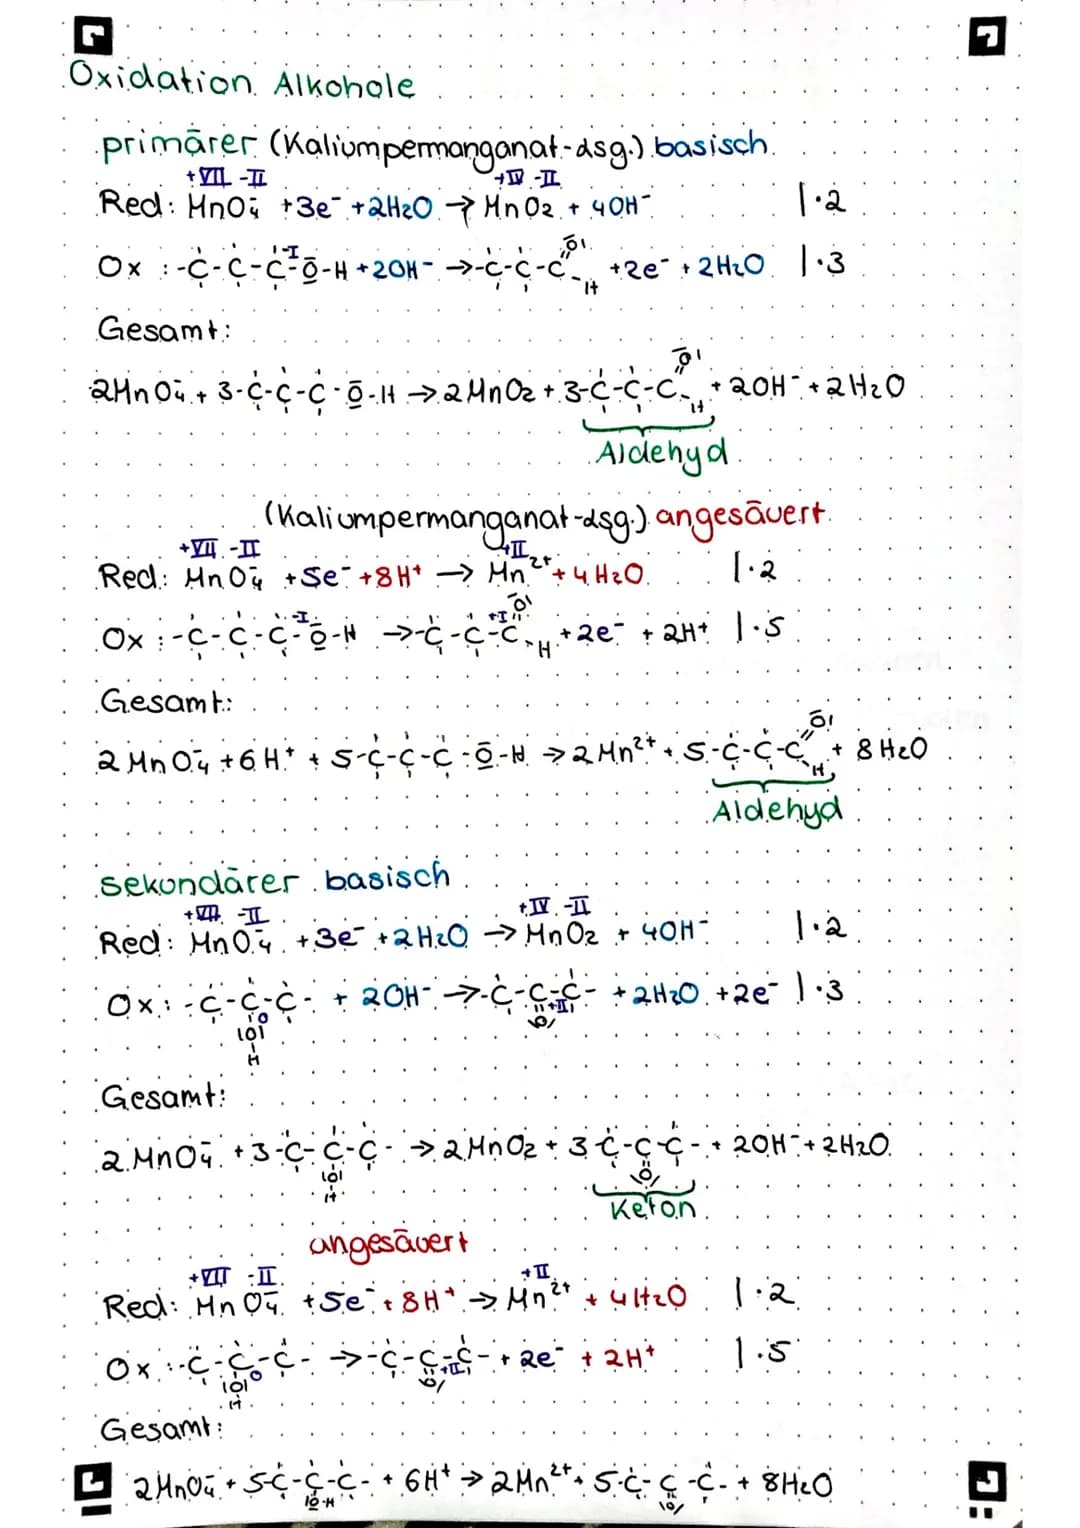 Oxidation Alkohole
primärer (Kaliumpermanganat-Lsg.) basisch
+VII -II +IV -II
Red: MnO₄⁻ +3e⁻ +2H₂O → MnO₂ + 4OH⁻ |·2
-I
Ox : -C-C-C-O-H +2OH⁻ → -C-C-C=O-H +2e⁻ + 2H₂O |·3
Gesamt:
2MnO₄⁻ + 3-C-C-C-O-H → 2MnO₂ + 3-C-C-C=O-H + 2OH⁻ + 2H₂O
Aldehyd
(Kaliumpermanganat-Lsg.) angesäuert
+VII -II +II
Red: MnO₄⁻ +5e⁻ +8H⁺ → Mn²⁺ + 4H₂O |·2
-I +I
Ox : -C-C-C-O-H → -C-C-C=O-H +2e⁻ + 2H⁺ |·5
Gesamt:
2MnO₄⁻ +6H⁺ + 5-C-C-C-O-H → 2Mn²⁺ + 5-C-C-C=O-H + 8H₂O
Aldehyd
sekundärer basisch
+VII -II +IV -II
Red: MnO₄⁻ +3e⁻ +2H₂O → MnO₂ + 4OH⁻ |·2
Ox : -C-C-C- + 2OH⁻ → -C-C-C- + 2H₂O +2e⁻ |·3
0 +II
|O| O
H
Gesamt:
2MnO₄⁻ +3-C-C-C- → 2MnO₂ + 3 C-C-C- + 2OH⁻ + 2H₂O
|O| O
H
Keton
angesäuert
+VII -II +II
Red: MnO₄⁻ +5e⁻ + 8H⁺ → Mn²⁺ + 4H₂O |·2
Ox : -C-C-C- → -C-C-C- + 2e⁻ + 2H⁺ |·5
|O| 0 O +II
H
Gesamt:
2MnO₄⁻ + 5-C-C-C- + 6H⁺ → 2Mn²⁺ + 5-C-C-C- + 8H₂O
|O-H |O|